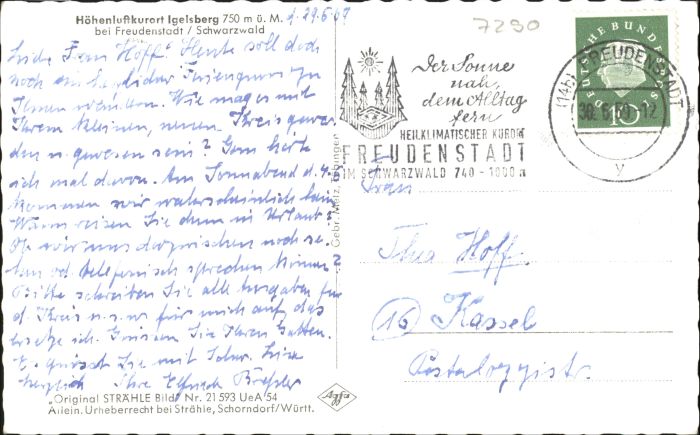 Höhenluftkurort Igelsberg 750 m ü. M.
bei Freudenstadt / Schwarzwald
29.6.59
Liebe Frau Hoff! Heute soll doch
noch ein lieber Feriengruss zu
Ihnen wandern. Wie mag es mit
Ihrem kleinen, neuen
gewesen sein? Gern hörte
ich mal davon. Am Sonnabend d. 4.
kommen wir wahrscheinlich heim.
Wann reisen Sie denn in Urlaub?
Ob wir uns dazwischen noch se-
hen od. telefonisch sprechen können?
Bitte schreiben Sie alle Ausgaben für
d. Kreis u.s.w. für mich auf, das
ersetze ich. Grüssen Sie Ihren Gatten.
Es grüsst Sie mit
herzlich Ihre
"Original STRÄHLE Bild" Nr. 21 593 UeA/54
Allein. Urheberrecht bei Strähle, Schorndorf/Württ.
Gebr. Metz, Tübingen
Agfa
7290
Der Sonne
nah,
dem Alltag
fern
HEILKLIMATISCHER KURORT
FREUDENSTADT
IM SCHWARZWALD 740 - 1000 m
DEUTSCHE BUNDESPOST
10
(14b) FREUDENSTADT
30.6.59-12
y
Frau
Thea Hoff
(16) Kassel